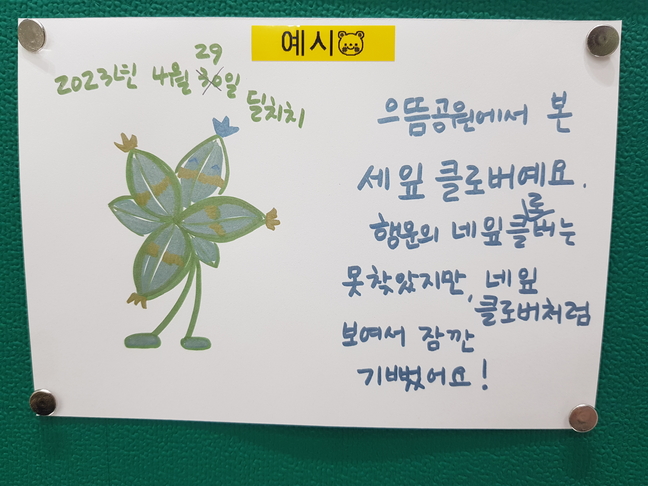 예시
29
2023년 4월 30일
달치치
으뜸공원에서 본
세 잎 클로버예요.
행운의 네잎클로버는
못찾았지만, 네잎
클로버처럼
보여서 잠깐
기뻤어요!